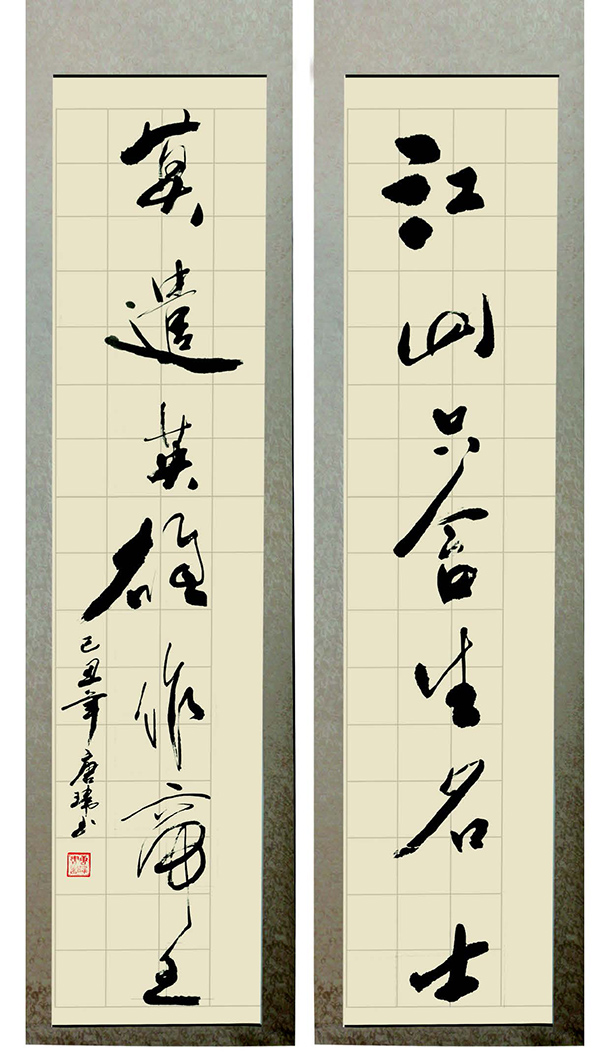 江山只合生名士
莫遣英雄作帝王
己丑年唐瑋书